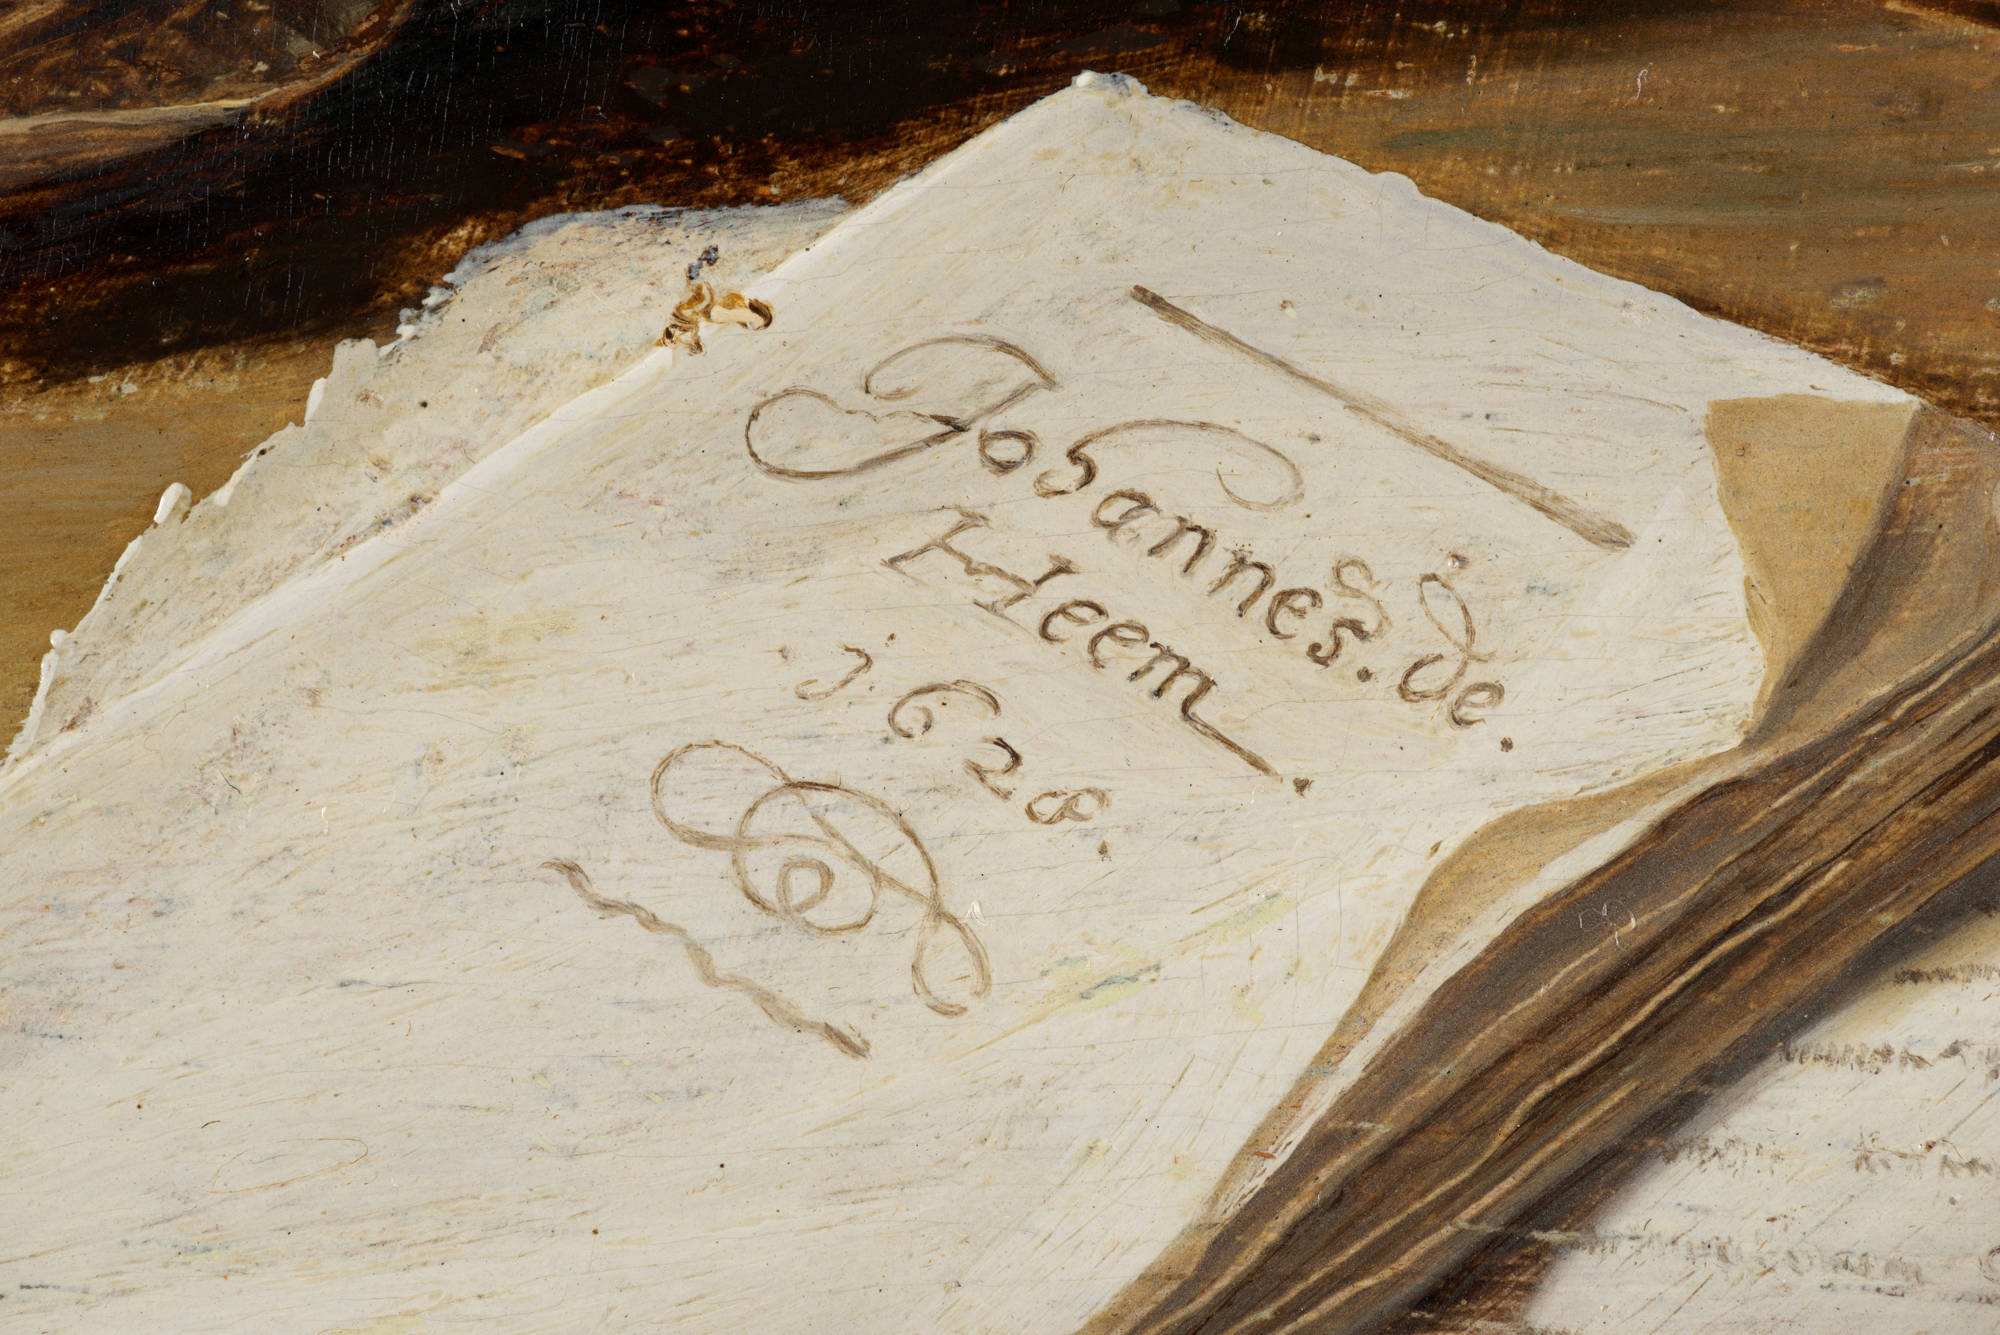 Johannes. de.
Heem.
1628.